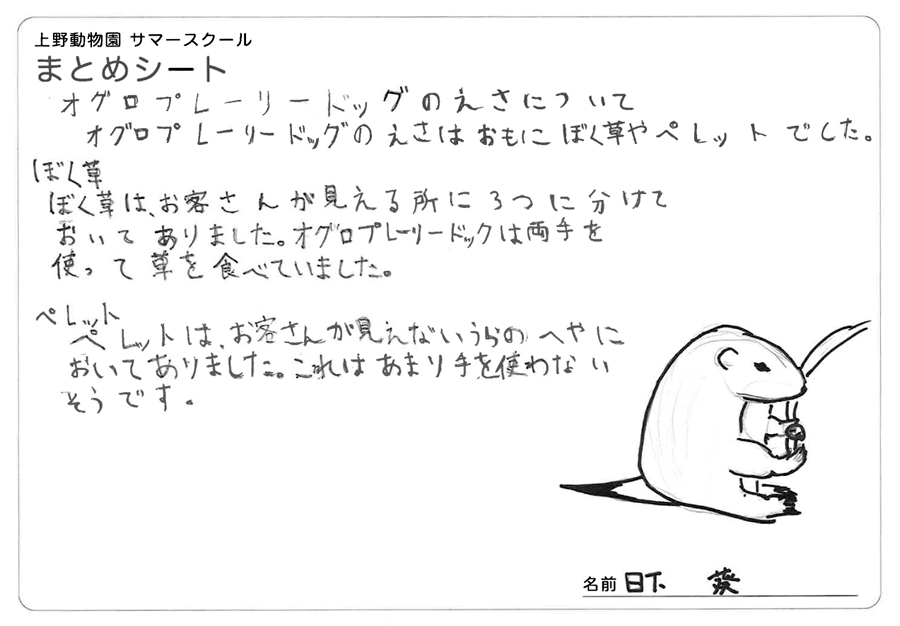 上野動物園 サマースクール
まとめシート
オグロプレーリードッグのえさについて
オグロプレーリードッグのえさはおもにぼく草やペレットでした。
ぼく草
ぼく草は、お客さんが見える所に3つに分けて
おいてありました。オグロプレーリードックは両手を
使って草を食べていました。
ペレット
ペレットは、お客さんが見えないうらのへやに
おいてありました。これはあまり手を使わない
そうです。
名前 日下 葵